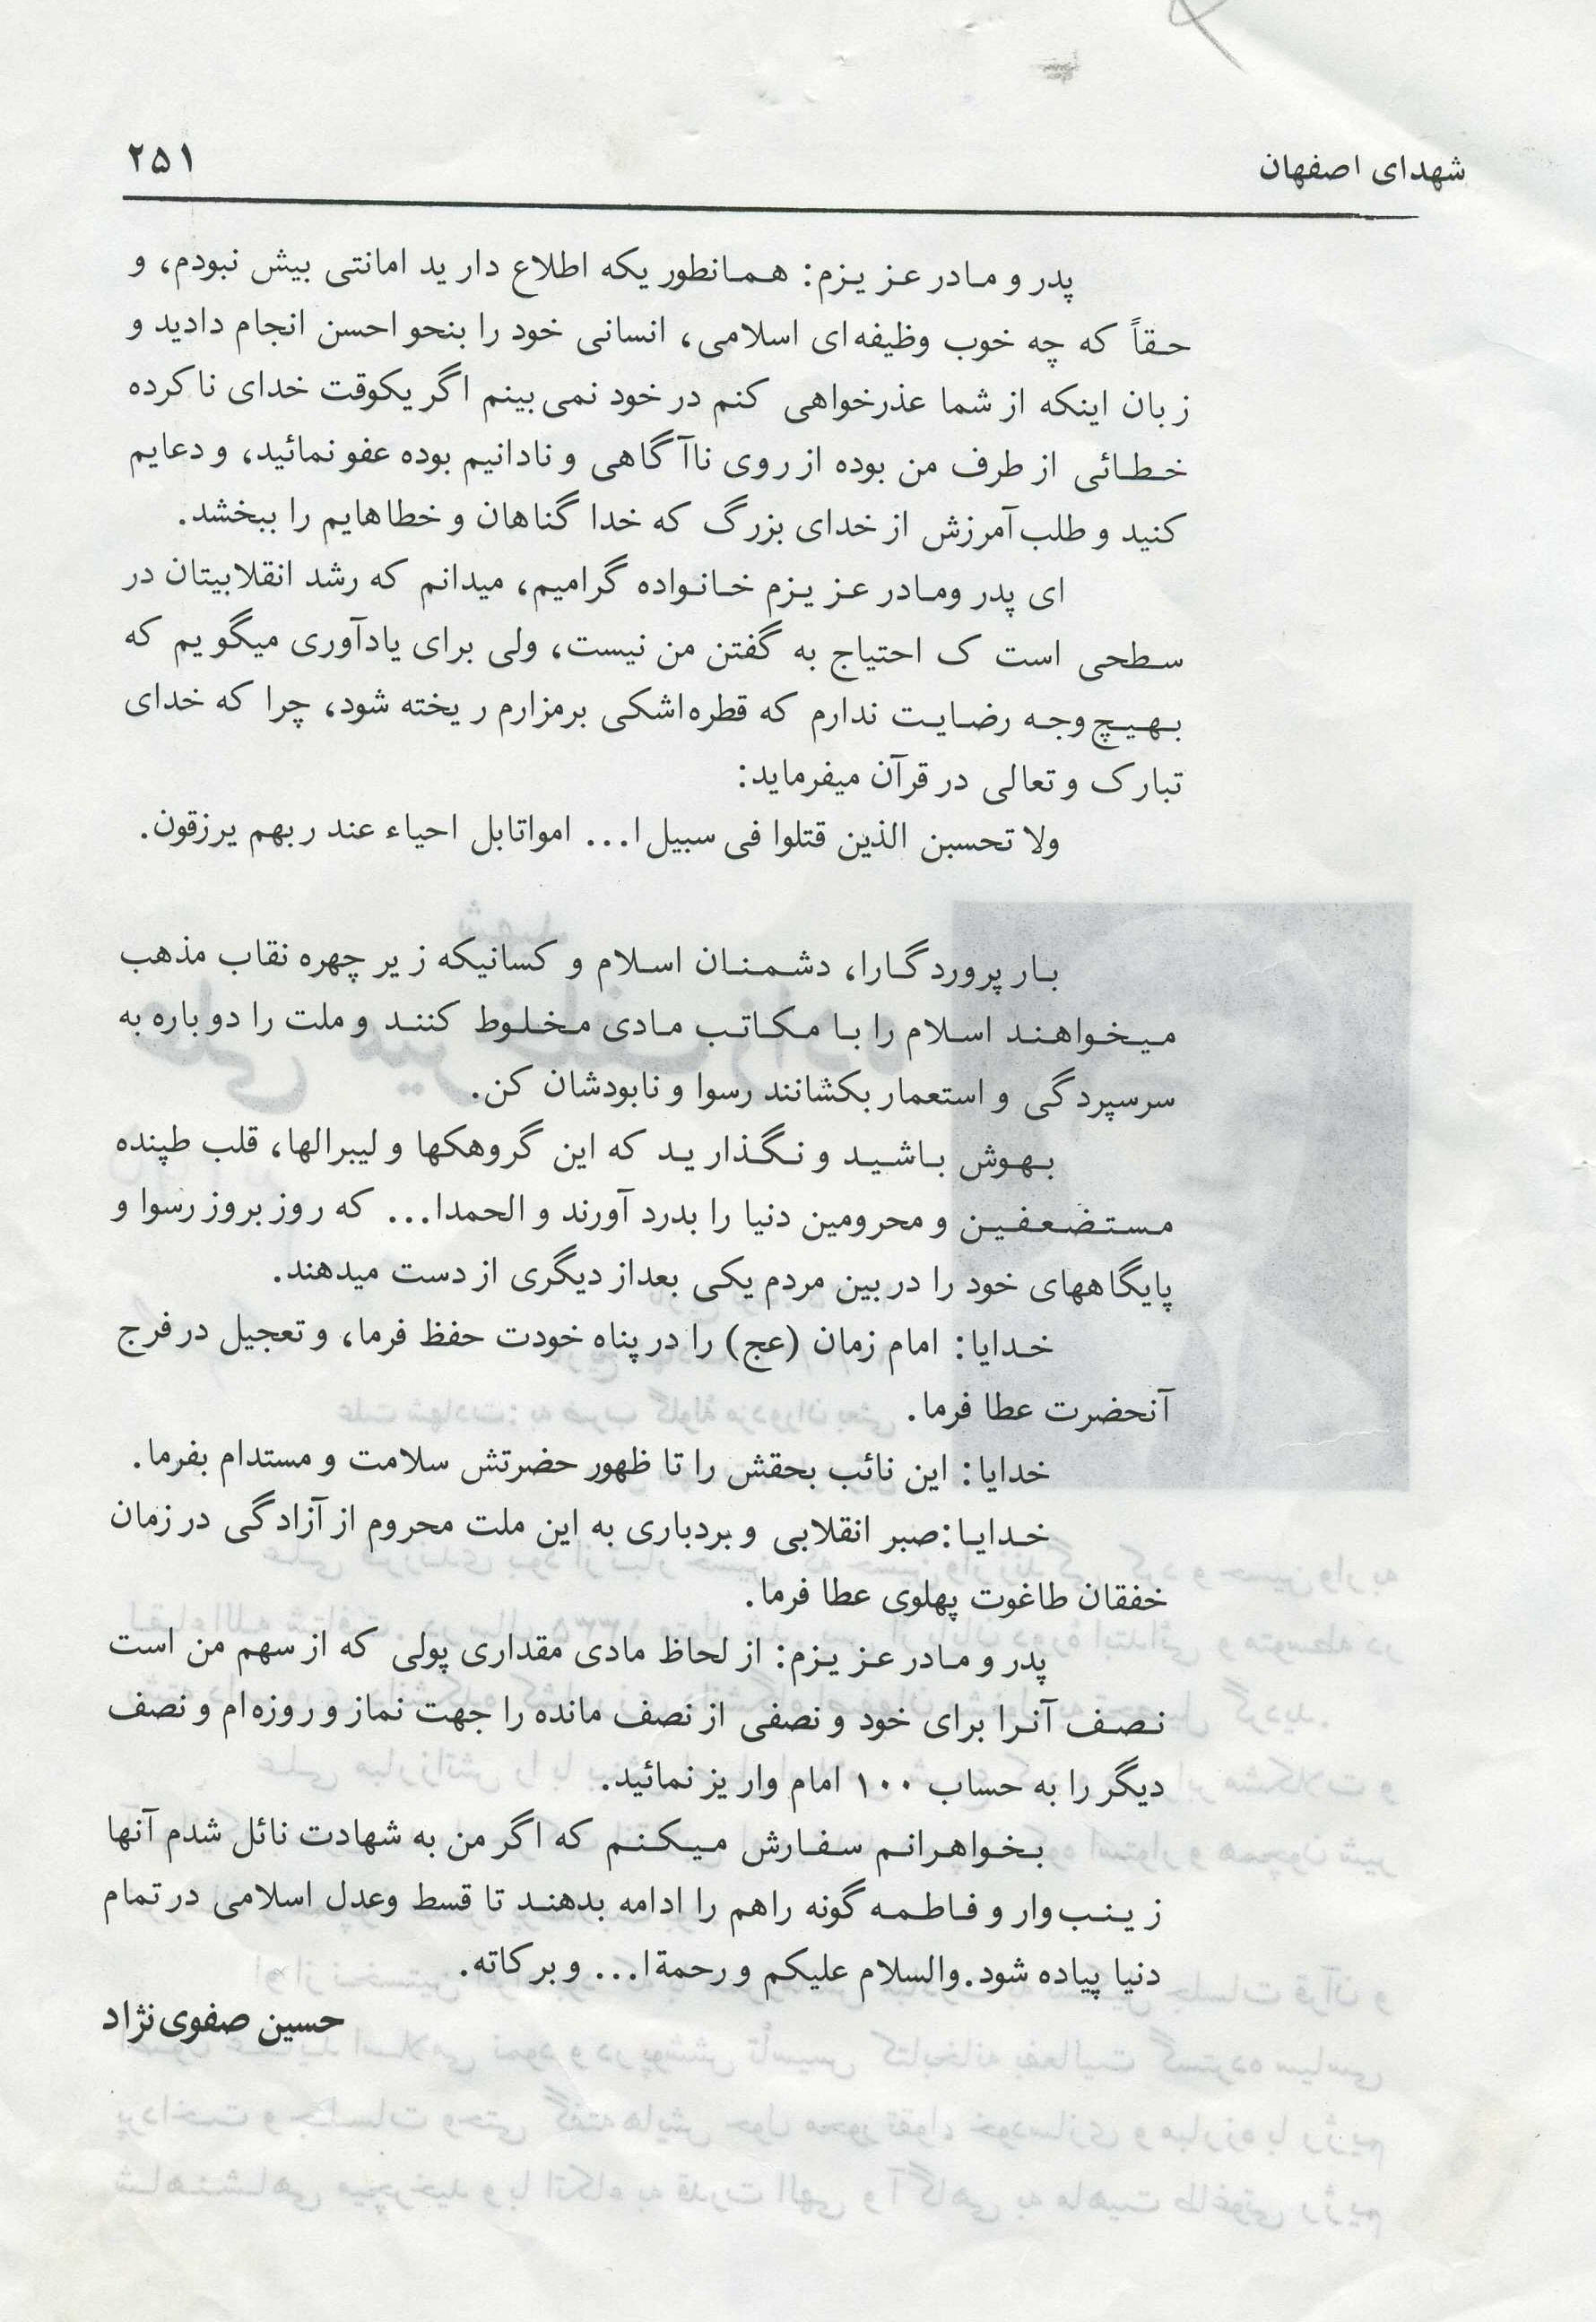 شهدای اصفهان
۲۵۱
پدر و مادر عزیزم: همانطوریکه اطلاع دارید امانتی بیش نبودم، و
حقاً که چه خوب وظیفه‌ای اسلامی، انسانی خود را بنحو احسن انجام دادید و
زبان اینکه از شما عذرخواهی کنم در خود نمی‌بینم اگر یکوقت خدای ناکرده
خطائی از طرف من بوده از روی ناآگاهی و نادانیم بوده عفو نمائید، و دعایم
کنید و طلب آمرزش از خدای بزرگ که خدا گناهان و خطاهایم را ببخشد.
ای پدر ومادر عزیزم خانواده گرامیم، میدانم که رشد انقلابیتان در
سطحی است ک احتیاج به گفتن من نیست، ولی برای یادآوری میگویم که
بهیچ‌وجه رضایت ندارم که قطره‌اشکی برمزارم ریخته شود، چرا که خدای
تبارک و تعالی در قرآن میفرماید:
ولا تحسبن الذین قتلوا فی سبیل ا... امواتابل احیاء عند ربهم یرزقون.
بار پروردگارا، دشمنان اسلام و کسانیکه زیر چهره نقاب مذهب
میخواهند اسلام را با مکاتب مادی مخلوط کنند و ملت را دوباره به
سرسپردگی و استعمار بکشانند رسوا و نابودشان کن.
بهوش باشید و نگذارید که این گروهکها و لیبرالها، قلب طپنده
مستضعفین و محرومین دنیا را بدرد آورند و الحمدا... که روز بروز رسوا و
پایگاههای خود را در بین مردم یکی بعداز دیگری از دست میدهند.
خدایا: امام زمان (عج) را در پناه خودت حفظ فرما، و تعجیل در فرج
آنحضرت عطا فرما.
خدایا: این نائب بحقش را تا ظهور حضرتش سلامت و مستدام بفرما.
خدایا:صبر انقلابی و بردباری به این ملت محروم از آزادگی در زمان
خفقان طاغوت پهلوی عطا فرما.
پدر و مادر عزیزم: از لحاظ مادی مقداری پولی که از سهم من است
نصف آنرا برای خود و نصفی از نصف مانده را جهت نماز و روزه‌ام و نصف
دیگر را به حساب ۱۰۰ امام واریز نمائید.
بخواهرانم سفارش میکنم که اگر من به شهادت نائل شدم آنها
زینب‌وار و فاطمه گونه راهم را ادامه بدهند تا قسط وعدل اسلامی در تمام
دنیا پیاده شود.والسلام علیکم و رحمة ا... و برکاته.
حسین صفوی‌نژاد